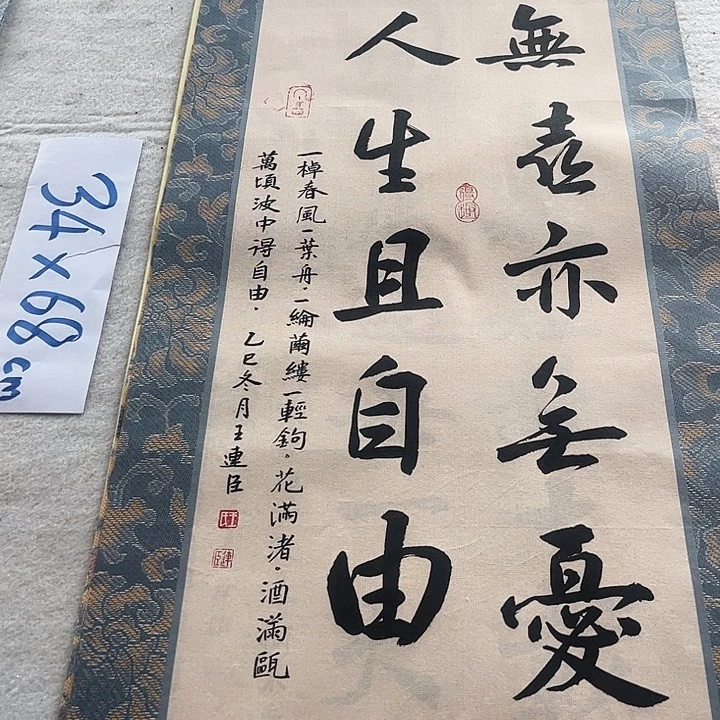 無喜亦無憂
人生且自由
一棹春風一葉舟。一綸繭縷一輕鉤。花滿渚。酒滿甌
萬頃波中得自由。乙巳冬月王連臣
34×68cm